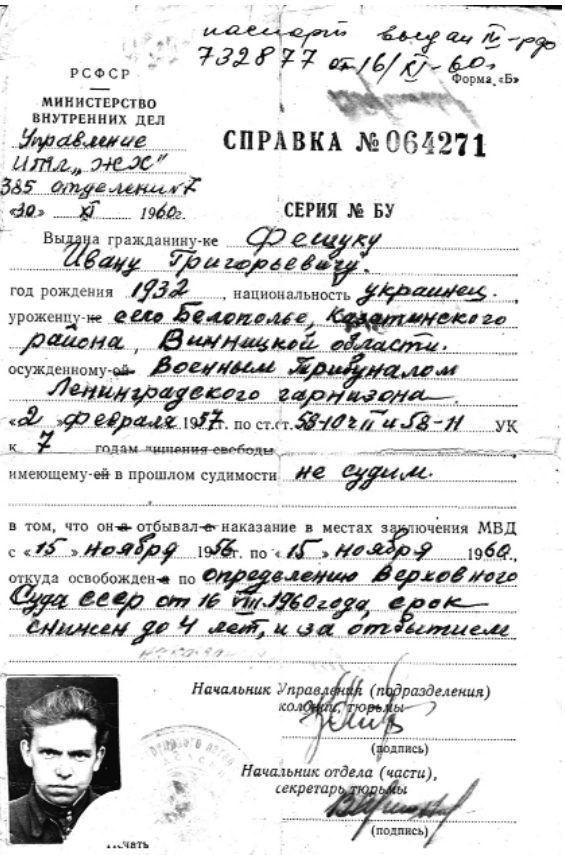 паспорт выдан IV-рдо
732877 от 16/XI-60г.
Форма „Б»
РСФСР
МИНИСТЕРСТВО
ВНУТРЕННИХ ДЕЛ
Управление
ИТЛ „ЖХ"
385 отделения 7
«30» XI 1960г.
СПРАВКА № 064271
СЕРИЯ № БУ
Выдана гражданину-ке Фещуку
Ивану Григорьевичу.
год рождения 1932, национальность украинец.,
уроженцу-ке село Белополье, Казатинского
района, Винницкой области.
осужденному-ой Военным Трибуналом
Ленинградского гарнизона
«2» февраля 1957г. по ст.ст. 58-10 ч II и 58-11 УК
к 7 годам лишения свободы,
имеющему-ей в прошлом судимости не судим.
в том, что он-а отбывал-а наказание в местах заключения МВД
с «15» ноября 1956г. по «15» ноября 1960,
откуда освобожден-а по определению Верховного
Суда СССР от 16 VIII-1960 года, срок
снижен до 4 лет, и за отбытием
Начальник Управления (подразделения)
колонии, тюрьмы
(подпись)
Начальник отдела (части),
секретарь тюрьмы
(подпись)
Печать